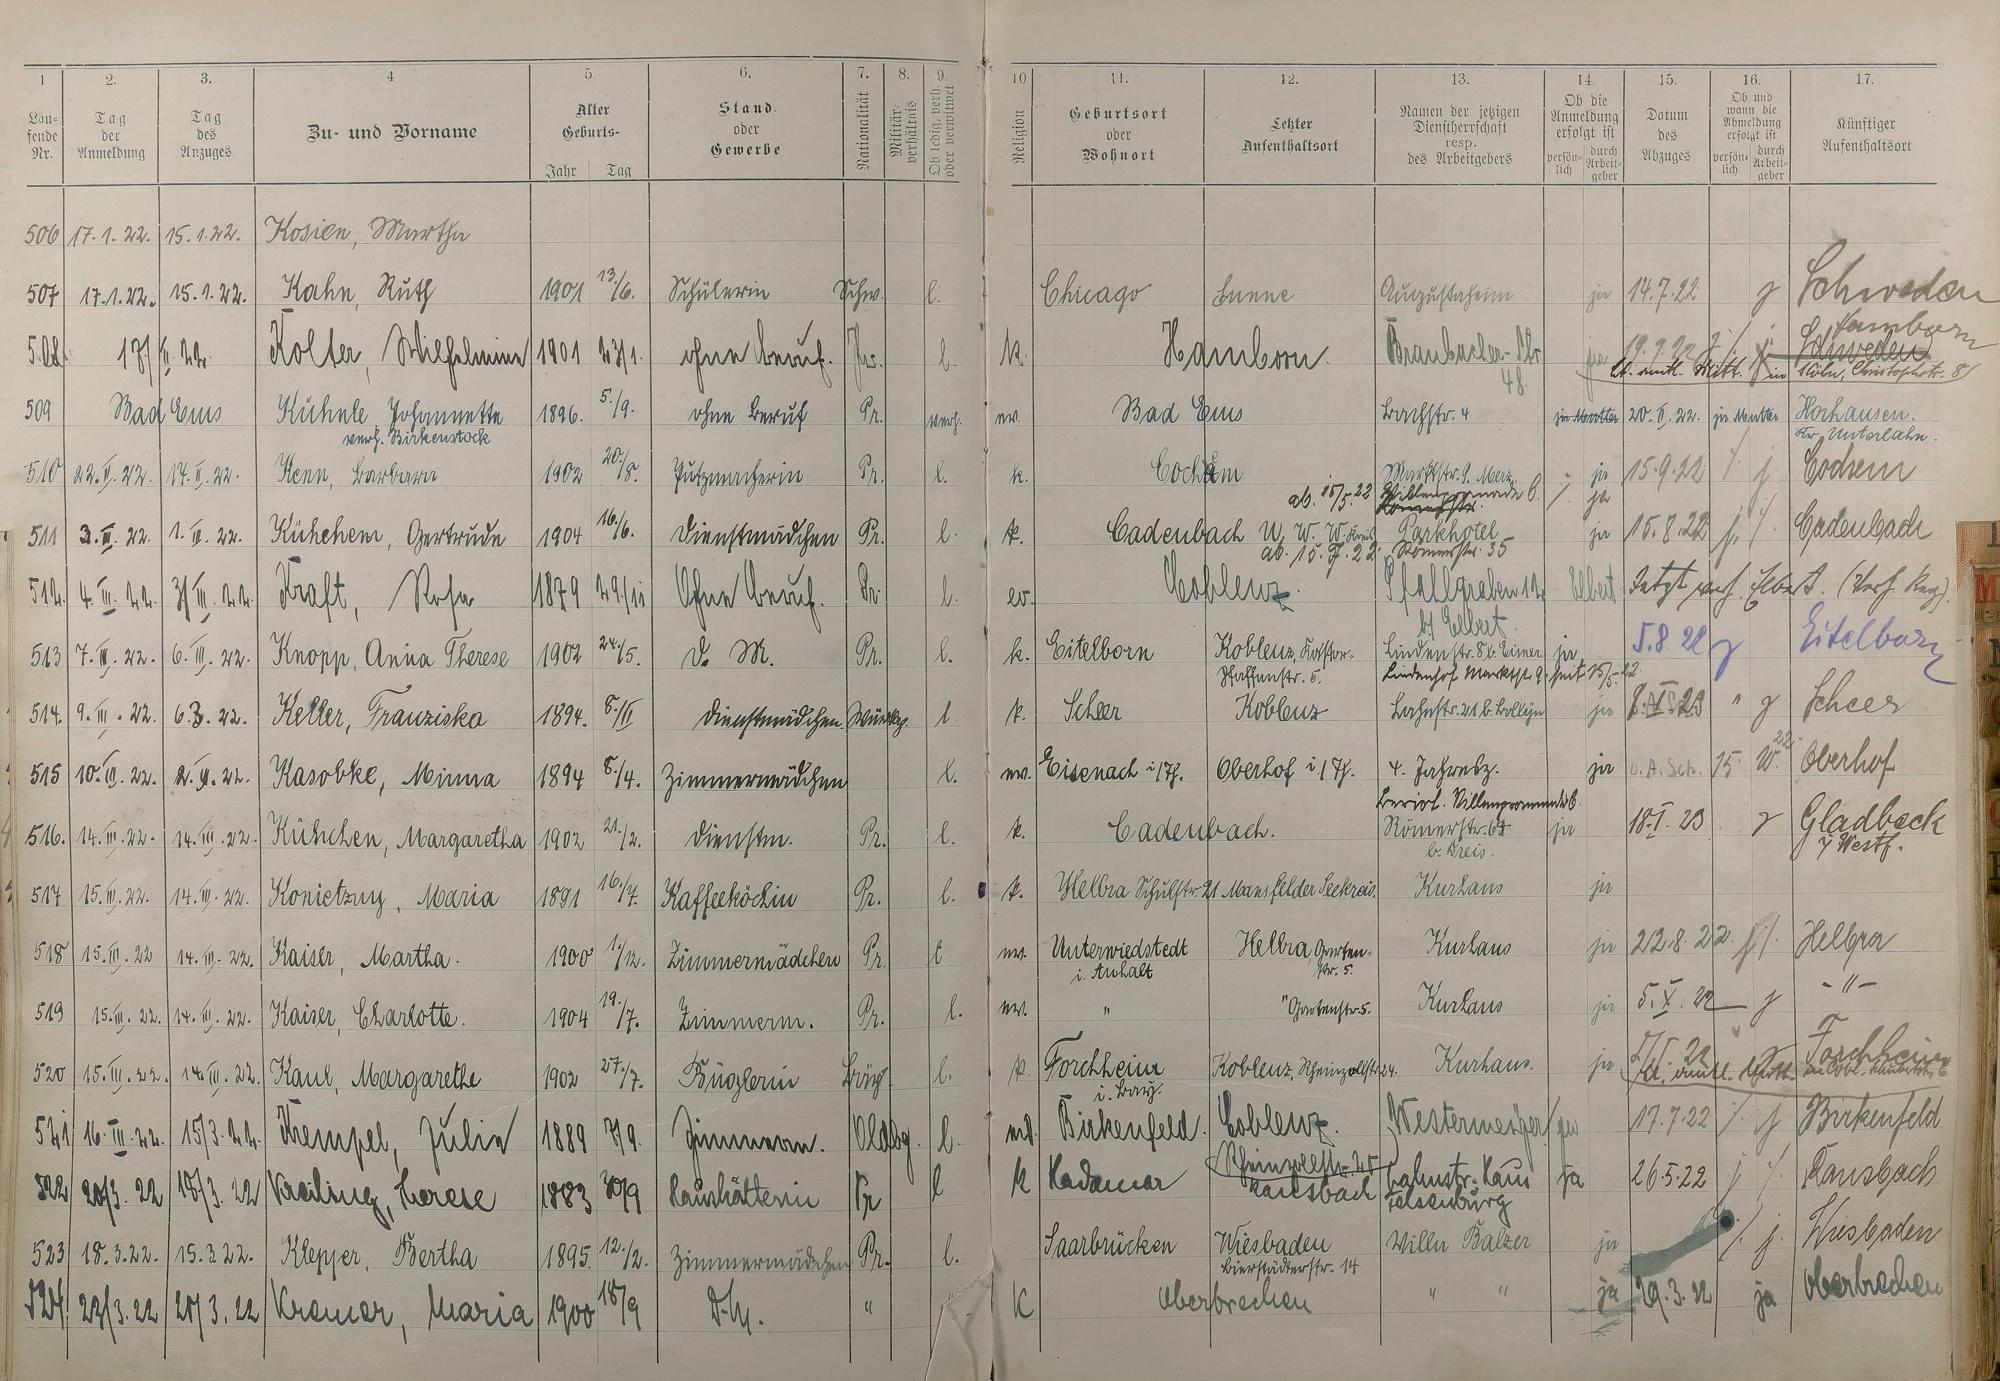 1 2. 3. 4 5. 6. 7. 8. 9. 10. 11. 12. 13. 14. 15. 16. 17.
Lau- fende Nr. Tag der Anmeldung Tag des Anzuges Zu- und Vorname Alter Geburts- Jahr Tag Stand oder Gewerbe Nationalität Militär- verhältnis Ob ledig, verh. oder verwitwet Religion Geburtsort oder Wohnort Letzter Aufenthaltsort Namen der jetzigen Dienstherrschaft resp. des Arbeitgebers Ob die Anmeldung erfolgt ist persön- lich durch Arbeit- geber Datum des Abzuges Ob und wann die Abmeldung erfolgt ist persön- lich durch Arbeit- geber Künftiger Aufenthaltsort
506 17.1.22. 15.1.22. Kosien, Martha
507 17.1.22. 15.1.22. Kahn, Ruth 1901 13/6. Schülerin Schw. l. Chicago Augustaheim ja 14.7.22 Schweden
508 Kolter, Wilhelmine 1901 23/1. ohne Beruf. Pr. l. k. Hamborn. Braubacher-Str. 48. ja 19.9.22 Hamborn
Schweden
lt. amtl. Mitt. in Köln, Christophstr. 8
509 Bad Ems Kühnle, Johannette 1896. 5./9. ohne Beruf Pr. verh. ev. Bad Ems Bachstr. 4 ja Mutter 20.II.22. ja Mutter Horhausen.
verh. Birkenstock Kr. Unterlahn.
510 22.II.22. 17.II.22. Kenn, Barbara 1902 20./8. Putzmacherin Pr. l. k. Cochem Marktstr. 9. Merz. ja 15.9.22 j Cochem
ab. 15/5.22 Villenpromenade 6. ja
Römerstr.
511 3.III.22. 1.III.22. Kühchem, Gertrude 1904 16./6. Dienstmädchen Pr. l. k. Cadenbach U. W. W. Kreis Parkhotel ja 15.8.22 Cadenbach
Römerstr. 35
512. 4.III.22. 3/III.22. Kraft, Rosa 1879 29./11 Ohne Beruf. Pr. l. ev. Coblenz Pfahlgraben 12 Elbert Jetzt verh. Elbert.
b/ Elbert.
513 7.III.22. 6.III.22. Knopp, Anna Therese 1902 24./5. D. M. Pr. l. k. Eitelborn Koblenz, Kastor- Lindenstr. 8 b. ja 5.8.22 Eitelborn
Pfaffenstr. 5. Lindenhof Marktstr. 9. seit 15/5.22
514. 9.III.22. 6.3.22. Keller, Franziska 1894. 8./II Dienstmädchen Württbg. l k. Scheer Koblenz ja Scheer
515 10.III.22. 2.II.22. Kasobke, Minna 1894 8./4. Zimmermädchen l. ev. Eisenach i/Th. Oberhof i/Th. 4. Jahresz. ja o. A. Sch. 15. Oberhof
Villenpromenade 6.
516. 14.III.22. 14.III.22. Kühchen, Margaretha 1902 21./2. Dienstm. Pr. l. k. Cadenbach. Römerstr. 64 ja 18.I.23 Gladbeck
b. Dreis. i/Westf.
517 15.III.22. 14.III.22. Konietzny, Maria 1891 16./7. Kaffeeköchin Pr. l. k. Helbra Schulstr. 21 Mansfelder Seekreis. Kurhaus ja
518 15.III.22 14.III.22. Kaiser, Martha. 1900 1./12. Zimmermädchen Pr. l ev. Unterwiedstedt Helbra Garten- Kurhaus ja 22.8.22. Helbra
i. Anhalt str. 5.
519 15.III.22. 14.III.22. Kaiser, Charlotte. 1904 19./7. Zimmerm. Pr. l. ev. " " Gartenstr. 5. Kurhaus ja 5.X.22 - " -
520 15.III.22. 14.III.22. Kaul, Margarethe 1902 27./7. Büglerin l. k. Forchheim Koblenz, Rheinzollstr. 24. Kurhaus. ja Forchheim
i. Bay.
521 16.III.22. 15/3.22. Kempel, Julie 1889 7/9. Zimmerm. Oldbg. l. Birkenfeld. Coblenz. 17.7.22 Birkenfeld
Rheinzollstr. 25
522 20/3.22 18/3.22 Kreiling, Therese 1883 30/9 Haushälterin Pr l k Hadamar Ransbach Bahnstr. Haus ja 26.5.22 Ransbach
Felsenburg
523 18.3.22. 15.3.22. Klepper, Bertha 1895. 12./2. Zimmermädchen Pr. l. Saarbrücken Wiesbaden Villa Balzer ja j. Wiesbaden
Bierstädterstr. 14
524 22/3.22 21/3.22 Kremer, Maria 1900 18/9 D.M. " K Oberbrechen " " ja 29.3.22 ja Oberbrechen